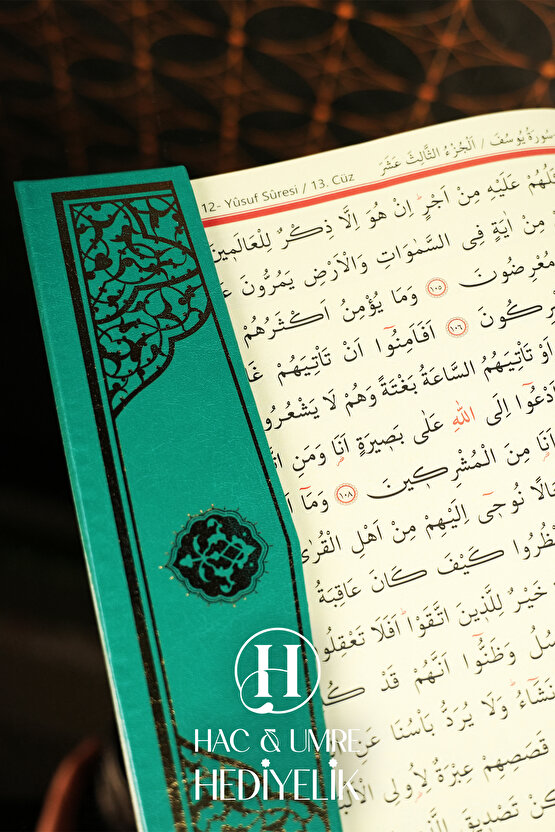 12- Yûsuf Sûresi / 13. Cüz
سورة يوسف / الجزء الثالث عشر
عَلَيْهِ مِنْ اَجْرٍ اِنْ هُوَ اِلَّا ذِكْرٌ لِلْعَالَمِينَ
مِنْ اٰيَةٍ فِى السَّمٰوَاتِ وَالْاَرْضِ يَمُرُّونَ
مُعْرِضُونَ ١٠٥ وَمَا يُؤْمِنُ اَكْثَرُهُمْ
١٠٦ اَفَاَمِنُٓوا اَنْ تَاْتِيَهُمْ
اَوْ تَاْتِيَهُمُ السَّاعَةُ بَغْتَةً وَهُمْ لَا يَشْعُرُو
اَدْعُٓوا اِلَى اللّٰهِ عَلٰى بَصٖيرَةٍ اَنَا وَمَنِ
اَنَا مِنَ الْمُشْرِكٖينَ ١٠٨ وَمَٓا
نُوحٖٓى اِلَيْهِمْ مِنْ اَهْلِ الْقُرٰى
كَيْفَ كَانَ عَاقِبَةُ
خَيْرٌ لِلَّذٖينَ اتَّقَوْا اَفَلَا تَعْقِلُو
وَظَنُّٓوا اَنَّهُمْ قَدْ
وَلَا يُرَدُّ بَاْسُنَا عَنِ
قَصَصِهِمْ عِبْرَةٌ لِاُو۬لِى
تَصْدٖيقَ
H
HAC & UMRE
HEDİYELİK